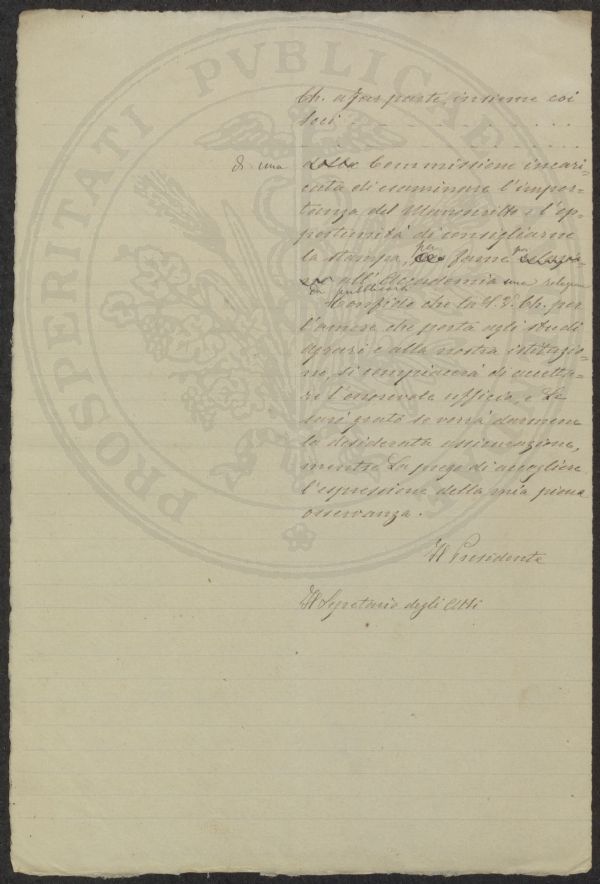 PROSPERITATI PVBLICAE
Ch. a far parte, insieme coi
Soci . . . . . . . . . . . .
. . . . . . . . . . . .
di una della Commissione incari-
cata di esaminare l'impor-
tanza del Manoscritto e l'op-
portunità di consigliarne
la stampa, per farne
all'Accademia una relazione
da pubblicarsi
Confido che la S. V. Ch. per
l'amore che porta agli studi
agrari e alla nostra istituzio-
ne, si compiacerà di accetta-
re l'onorevole ufficio, e Le
sarò grato se vorrà darmene
la desiderata assicurazione,
mentre La prego di accogliere
l'espressione della mia piena
osservanza.
Il Presidente
Il Segretario degli Atti